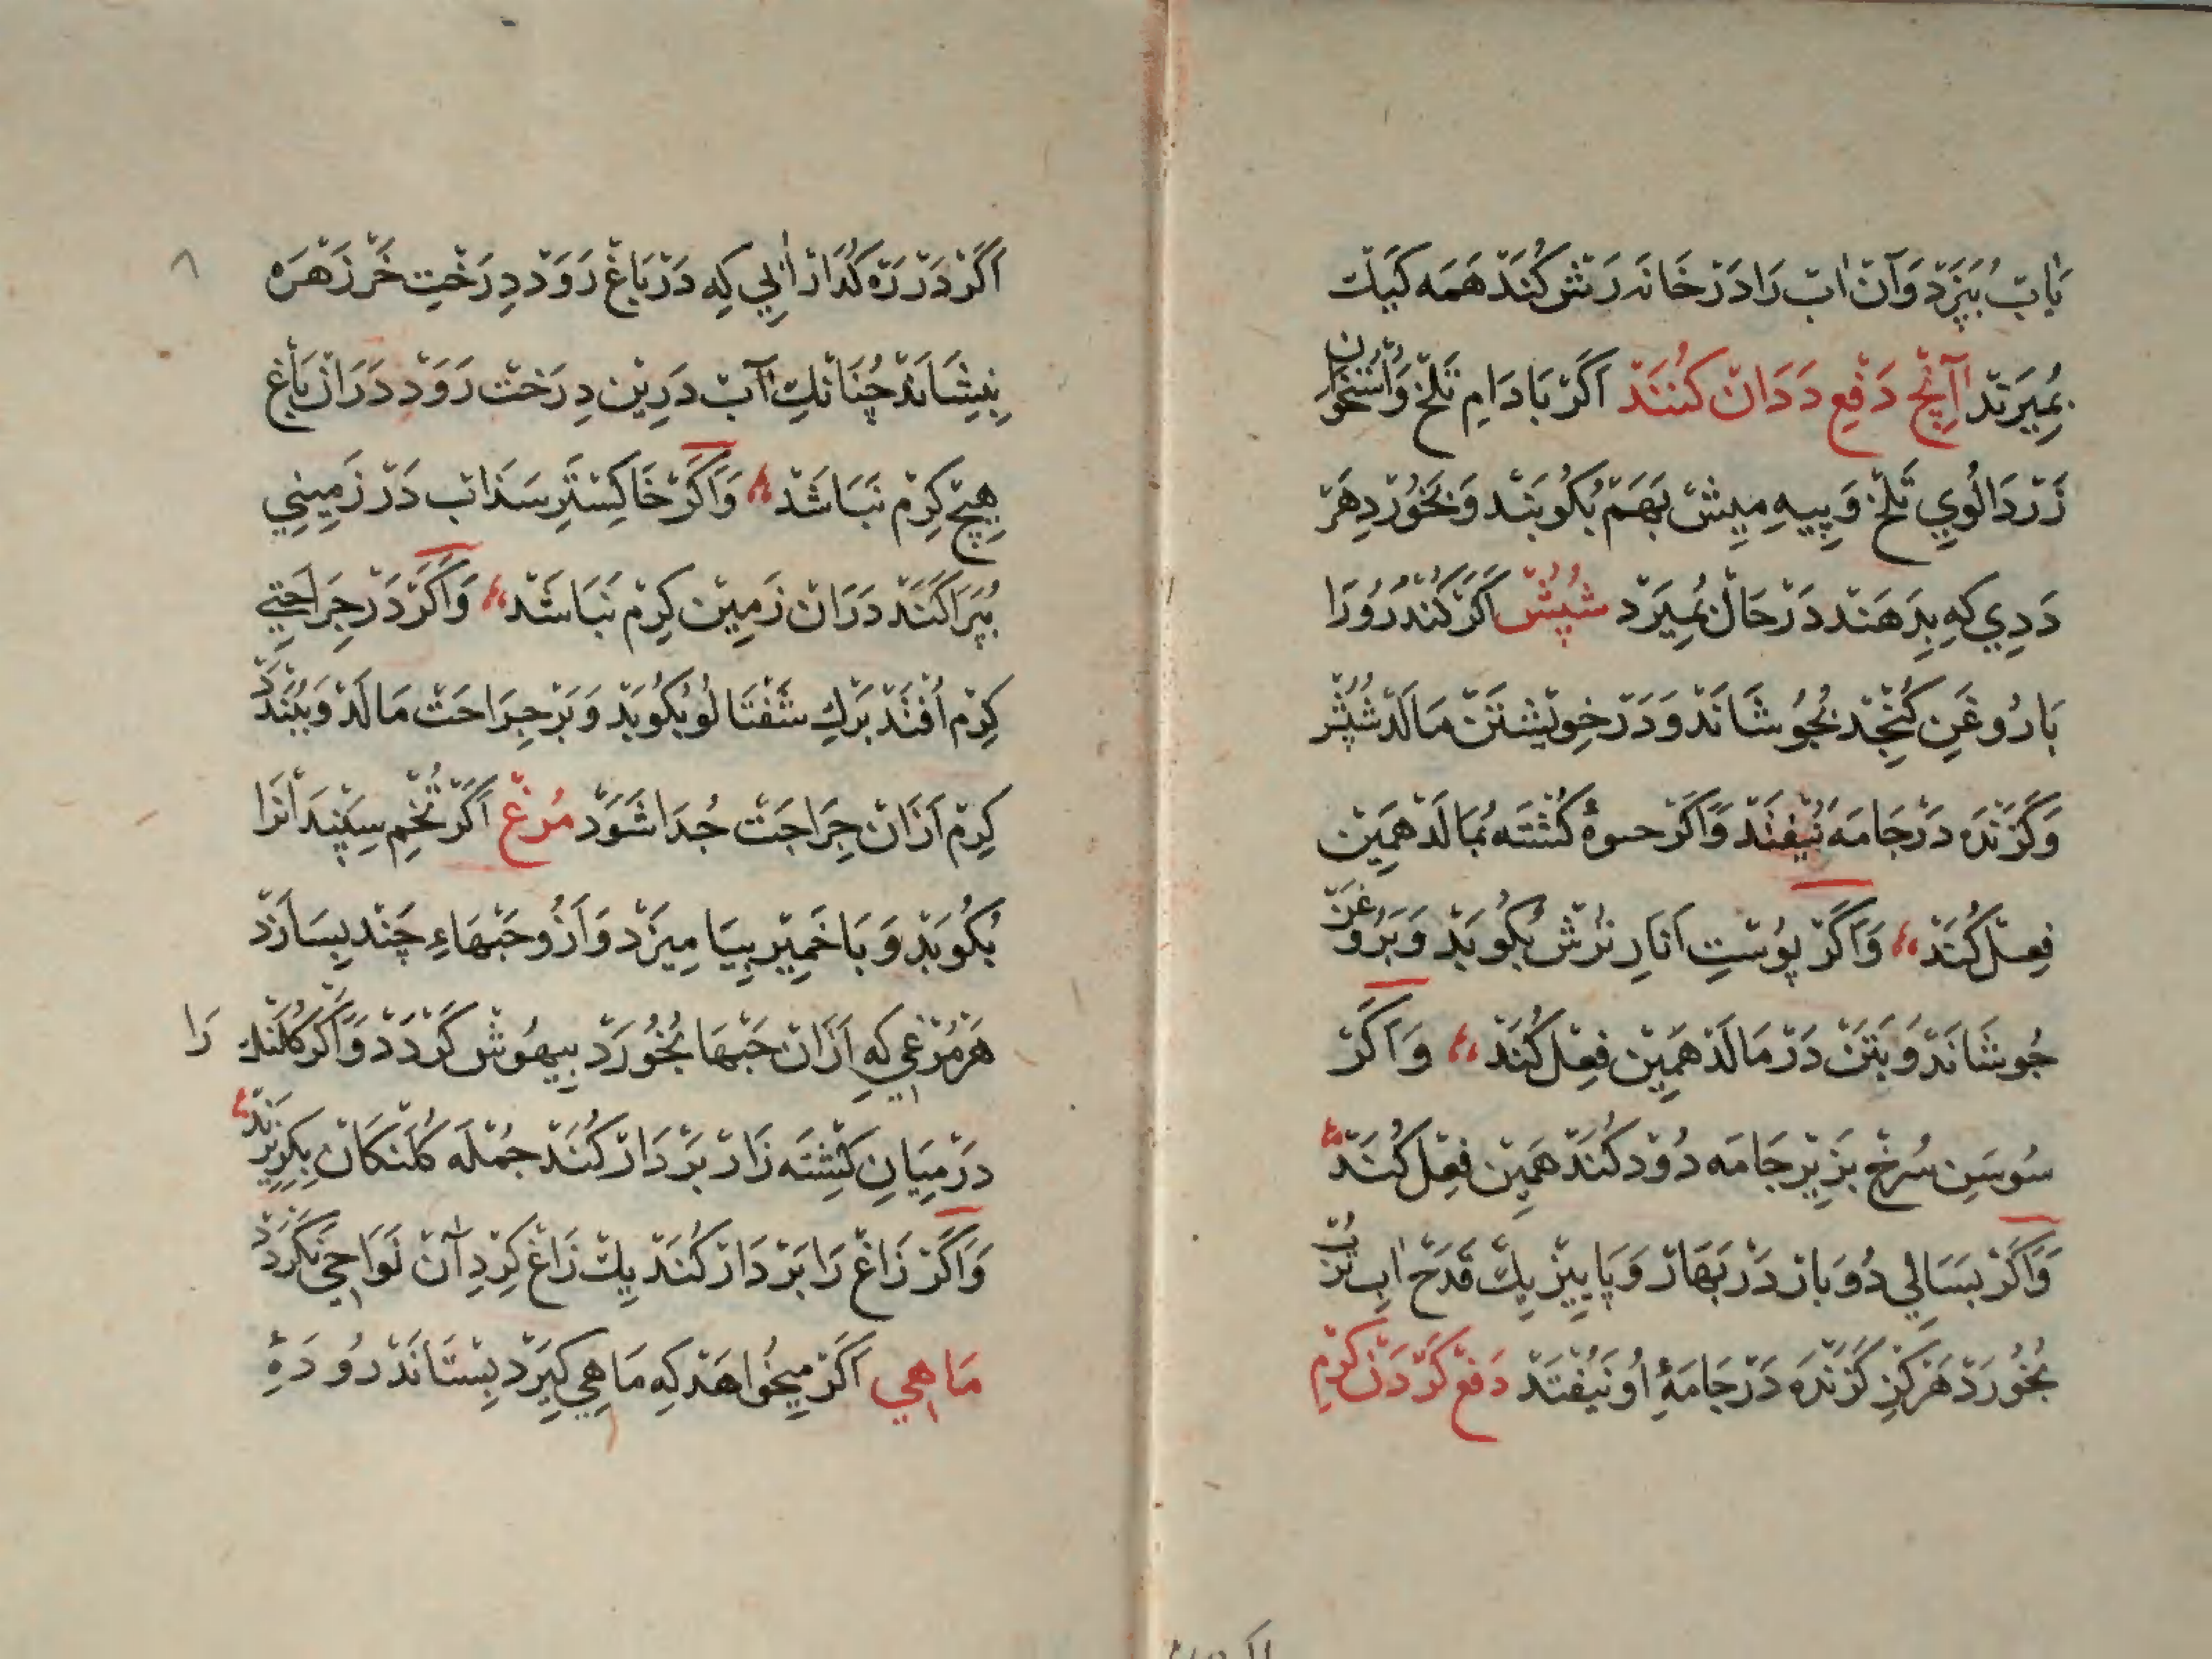 بَابْ بِپَزَدْ وَآنْ ابْ رَا دَرْ خَانَه رَشْ كُنَدْ هَمَه كَيَكْ
بِمُيرَنْدْ آنِچْ دَفْعِ دَدَانْ كُنَنَدْ اَكَرْ بَادَامِ تَلْخْ وَاُسْتُخْوَانِ
زَرْدَالُويِ تَلْخْ وَپِيهِ مِيشْ بَهَمْ بُكُوبَنْد وَبَخُورْدِ هَرْ
دَدِي كِه بِدَهَنْد دَرْحَالْ بُمِيرَدْ شُپُشْ اَكَرْ كُنْدُرُورَا
بَا رُوغَنِ كُنْجُدْ بُجُوشَانَدْ وَدَرْ خِويْشْتَنْ مَالَدْ شُپُشْ
وَكَزَنْدَه دَرْجَامَه نَيُفْتَدْ وَاَكَرْ حسوهٔ كُشْتَه بُمَالَدْ هَمِينْ
فِعِلْ كُنَدْ وَاَكَرْ پُوسْتِ اَنَارِ تُرُشْ بُكُوبَدْ وَبَرُوغَنْ
جُوشَانَدْ وَبَتَنْ دَرْ مَالَدْ هَمِينْ فِعِلْ كُنَدْ وَاَكَرْ
سُوسَنِ سُرْخْ بَزِيْرِ جَامَه دُوْد كُنَدْ هَمِينْ فِعِلْ كُنَدْ
وَاَكَرْ بَسَالِي دُوبَارْ دَرْ بَهَارْ وَپَايِيزْ يِكْ قَدَحْ ابِ تُرُبْ
بُخُورَدْ هَرْكِزْ كَزَنْدَه دَرْجَامَهٔ اُو نَيُفْتَدْ دَفْعْ كَرْدَنْ كِرْمِ
اَكَرْ دَرْ رَه كُذَارْ ابِي كِه دَرْ بَاغْ رَوَدْ دِرَخْتِ خَرْزَهْرَه
بِنِشَانَدْ چُنَانْكِ آبْ دَرِينْ دِرَخْتْ رَوَدْ دَرَانْ بَاغْ
هِيچْ كِرْم نَبَاشَدْ وَاَكَرْ خَاكِسْتَرِ سَذَابْ دَرْ زَمِينِي
بُپَرَاكَنَدْ دَرَانْ زَمِينْ كِرْم نَبَاشَدْ وَاَكَرْ دَرْ جِرَاحَتِي
كِرْم اُفْتَدْ بَرْكِ شَفْتَالُو بُكُوبَدْ وَبَرْ جِرَاحَتْ مَالَدْ وَبَبَنْدَدْ
كِرْم اَزَانْ جِرَاحَتْ جُدَا شَوَدْ مُرْغْ اَكَرْ تُخْمِ سِپَنْدَانْرَا
بُكُوبَدْ وَبَا خَمِيْرِ بِيَامِيزَدْ وَاَزُو حَبْهَاءِ چَنْد بِسَازَدْ
هَرْ مُرْغِي كِه اَزَانْ حَبْهَا بُخُورَدْ بِيهُوشْ كَرْدَدْ وَاَكَرْ كُلَنْكْ رَا
دَرْ مِيَانِ كِشْتَه زَارْ بَرْ دَارْ كُنَدْ جُمْلَه كُلَنْكَانْ بِكِرِيزَنْدْ
وَاَكَرْ زَاغْ رَا بَرْ دَارْ كُنَدْ يِكْ زَاغْ كِرْدِ آنْ نَوَاحِي نَكَرْدَدْ
مَاهِي اَكَرْ مِيخُوَاهَدْ كِه مَاهِي كِيرَدْ بِسْتَانَدْ رُودَهٔ